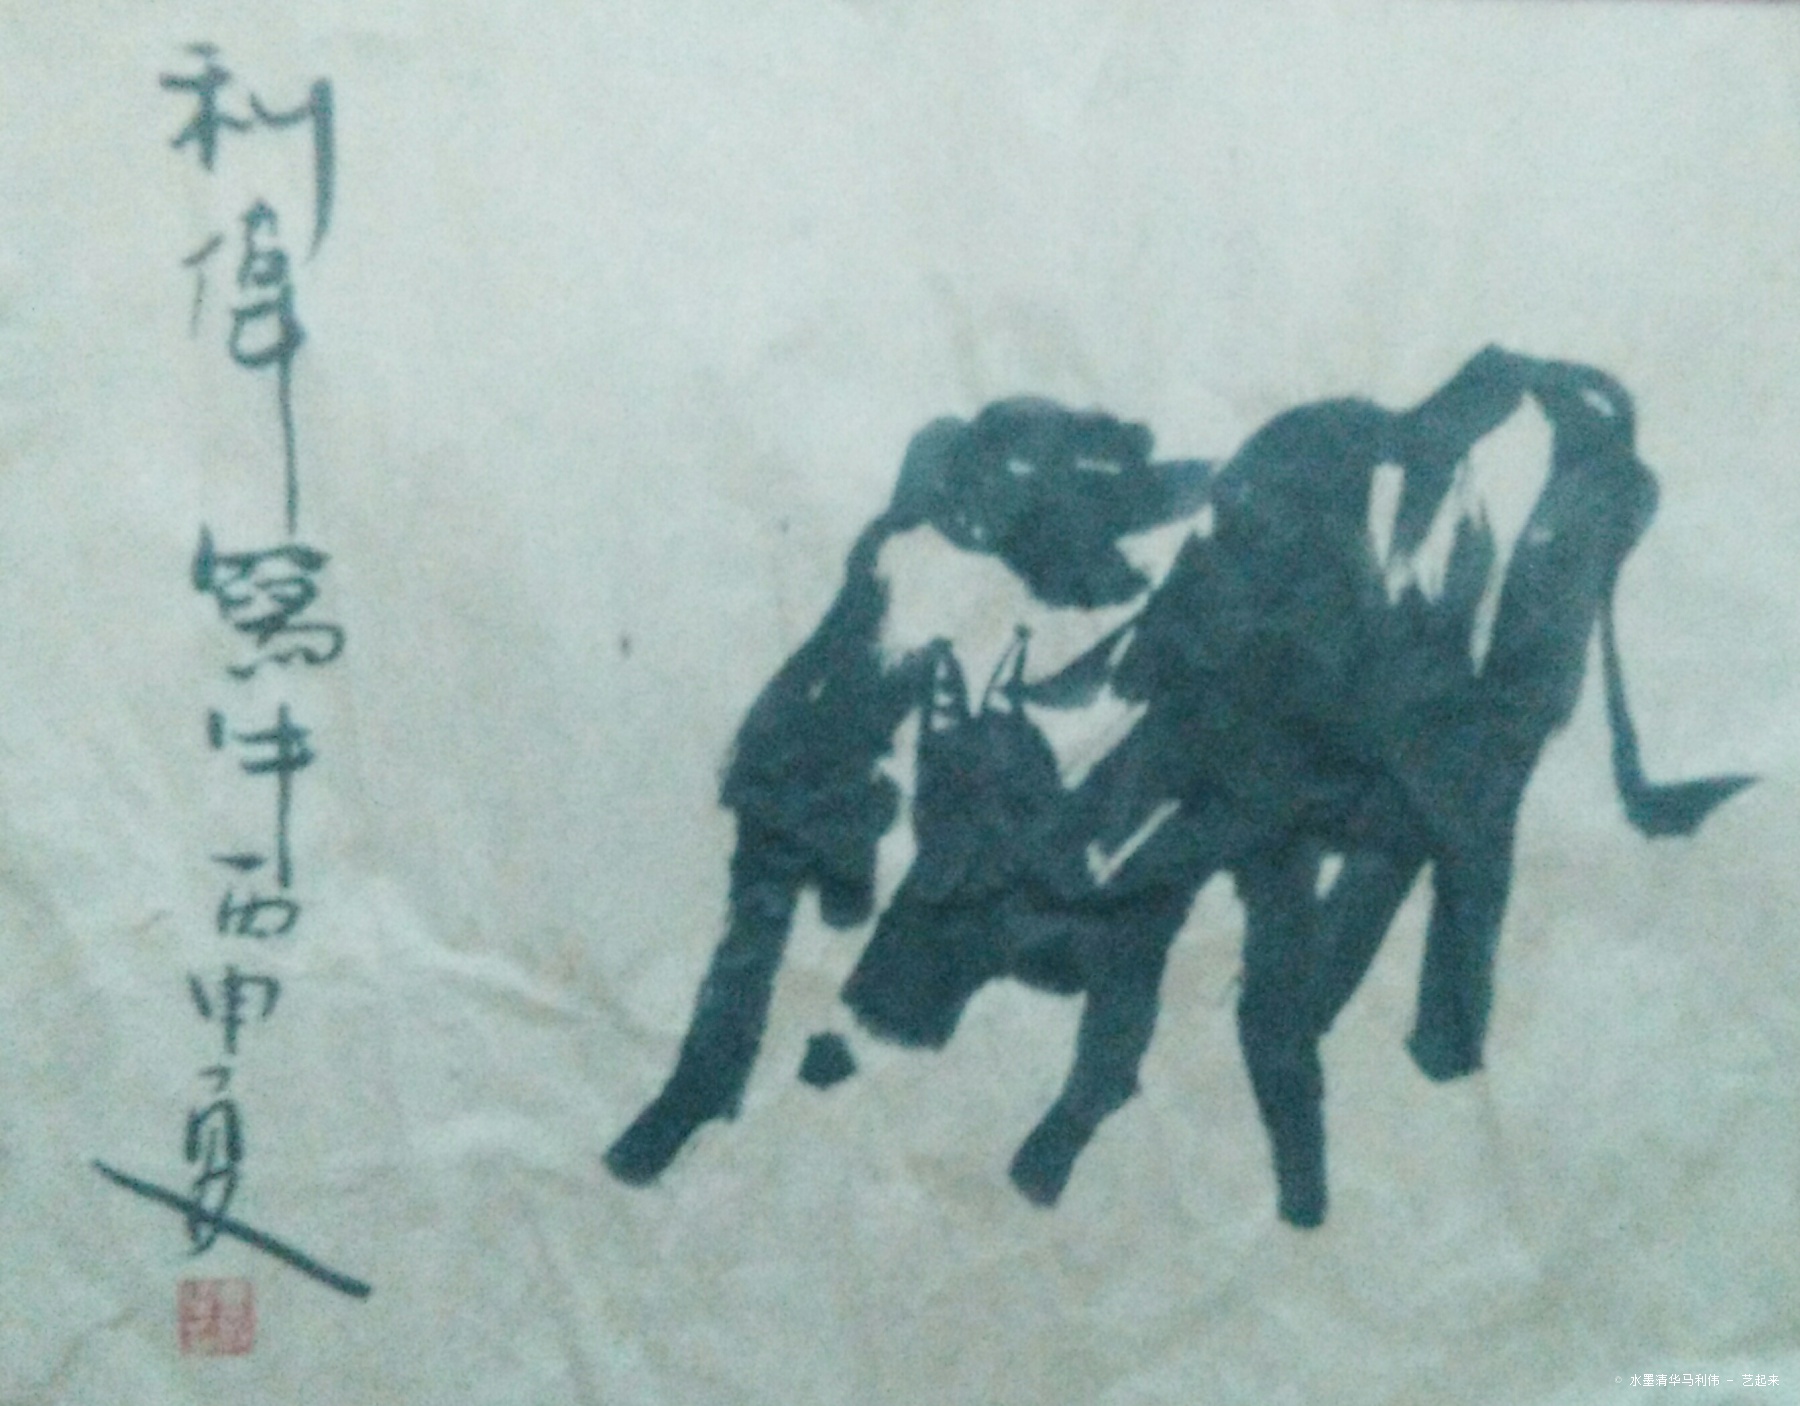 利偉寫牛丙申夏
© 水墨清华马利伟 - 艺起来